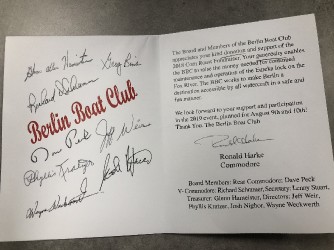 Greg Buck
Berlin Boat Club
Dave Peck
Jeff Weir
Phyllis Kratzer
The Board and Members of the Berlin Boat Club
appreciates your kind donation and support of the
2018 Corn Roast Fundraiser. Your generosity enables
the BBC to raise the money needed for continued
maintenance and operation of the Eureka lock on the
Fox River. The BBC works to make Berlin a
destination accessible by all watercraft in a safe and
fun manner.
We look forward to your support and participation
in the 2019 event, planned for August 9th and 10th!
Thank You. The Berlin Boat Club
Ronald Harke
Commodore
Board Members: Rear Commodore: Dave Peck
V- Commodore: Richard Schramer, Secretary: Lenny Stuart,
Treasurer: Glenn Hamerston, Directors: Jeff Weir,
Phyllis Kratzer, Josh Nighor, Wayne Weckwerth